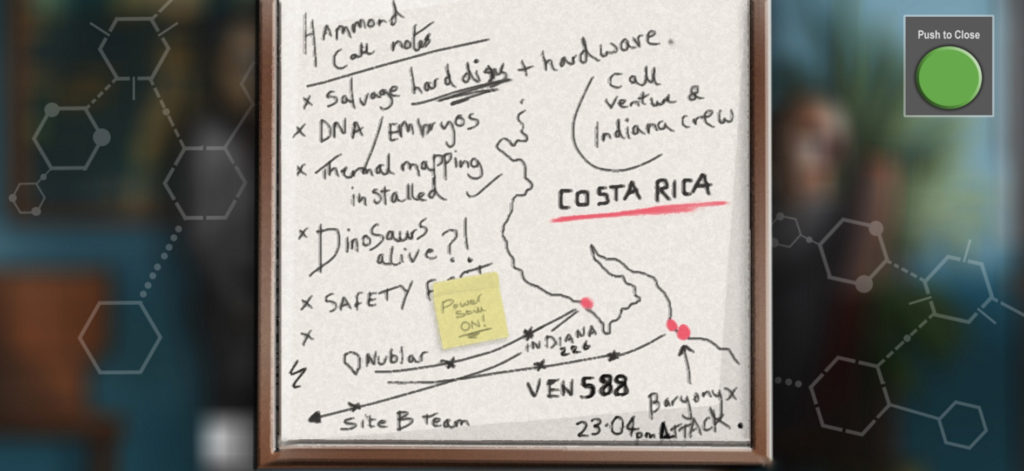 Hammond
Call notes
x Salvage hard discs + hardware.
Call
Venture &
Indiana crew
x DNA / Embryos
x Thermal mapping
installed
COSTA RICA
x Dinosaurs
alive?!
x SAFETY
Power
Still
ON!
x
Nublar
INDIANA
226
VEN 588
Site B Team
Baryonyx
23:04pm ATTACK.
Push to Close